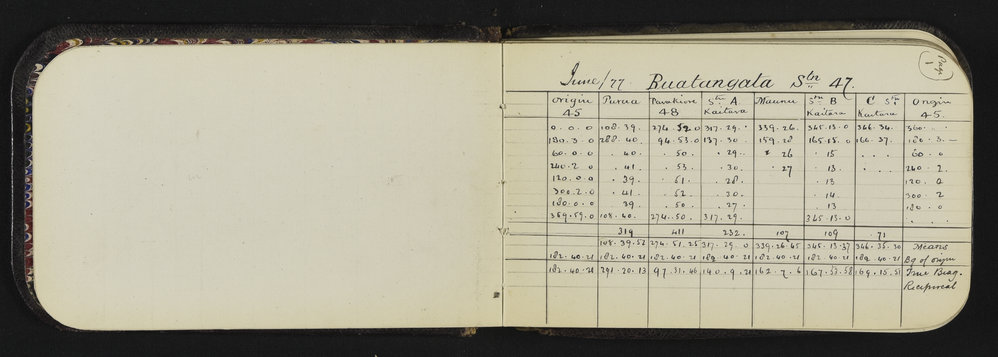 Page 1
June/77. Ruatangata Stn 47.
Origin 45 Parua Parakiore 48 Stn A Kaitara Maunu Stn B Kaitara C Stn Kaitara Origin 45.
0. 0. 0 108. 39. 274. 52. 0 317. 29. 339. 26. 345. 13. 0 346. 34. 360. . .
180. 3. 0 288. 40. 94. 53. 0 137. 30. 159. 28 165. 15. 0 166. 37. 180. 3. —
60. 0. 0 . 40. . 50. . 29. 26 . 15 . . . 60. 0
240. 2. 0 . 41. . 53. . 30. . 27 . 13. . . . 240. 2
120. 0. 0 . 39. . 51. . 28. . 13 120. 0
300. 2. 0 . 41. . 52. . 30. . 14. 300. 2
180. 0. 0 39. . 50. . 27. . 13 180. 0
359. 59. 0 108. 40. 274. 50. 317. 29. 345. 13. 0 . . .
319 411 232. 107 109 . 71
108. 39. 52 274. 51. 25 317. 29. 0 339. 26. 45 345. 13. 37 346. 35. 30 Means
182. 40. 21 182. 40. 21 182. 40. 21 182. 40. 21 182. 40. 21 182. 40. 21 182. 40. 21 Bg of origin
182. 40. 21 291. 20. 13 97. 31. 46 140. 9. 21 162. 7. 6 167. 53. 58 169. 15. 51 True Beag.
Reciprocal